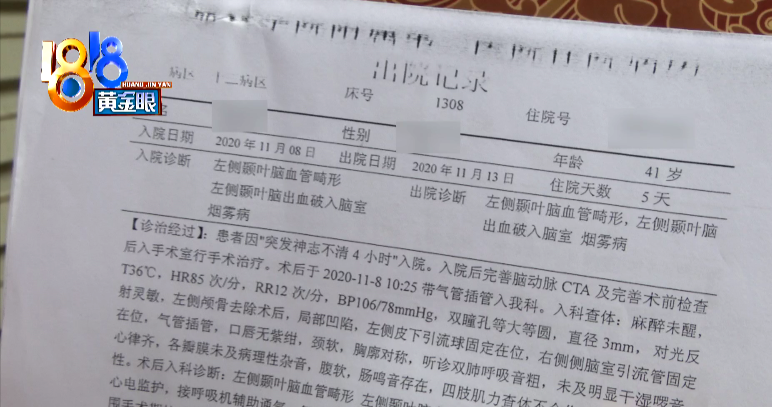 1818
HUANG JIN YAN
黄金眼
出院记录
病区 十二病区 床号 1308 住院号
性别 年龄 41 岁
入院日期 2020 年 11 月 08 日 出院日期 2020 年 11 月 13 日 住院天数 5 天
入院诊断 左侧颞叶脑血管畸形 出院诊断 左侧颞叶脑血管畸形，左侧颞叶脑
左侧颞叶脑出血破入脑室 出血破入脑室 烟雾病
烟雾病
【诊治经过】：患者因"突发神志不清 4 小时"入院。入院后完善脑动脉 CTA 及完善术前检查
后入手术室行手术治疗。术后于 2020-11-8 10:25 带气管插管入我科。入科查体：麻醉未醒，
T36℃，HR85 次/分，RR12 次/分，BP106/78mmHg，双瞳孔等大等圆，直径 3mm，对光反
射灵敏，左侧颅骨去除术后，局部凹陷，左侧皮下引流球固定在位，右侧侧脑室引流管固定
在位，气管插管，口唇无紫绀，颈软，胸廓对称，听诊双肺呼吸音粗，未及明显干湿啰音，
心律齐，各瓣膜未及病理性杂音，腹软，肠鸣音存在，四肢肌力查体不
性。术后入科诊断：左侧颞叶脑血管畸形 左侧颞叶脑
心电监护，接呼吸机辅助通气